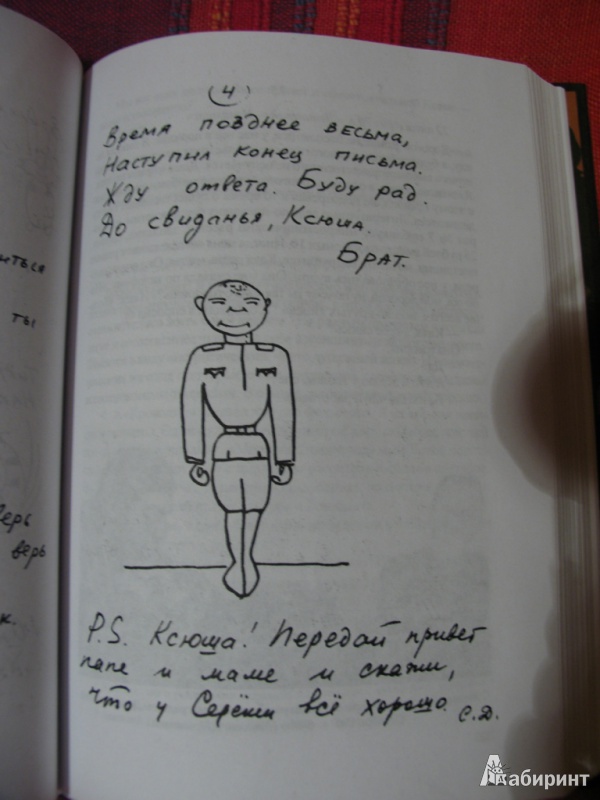 (4)
Время позднее весьма,
Наступил конец письма.
Жду ответа. Буду рад.
До свиданья, Ксюша.
Брат.
иться
ты
верь
верь
к.
P.S. Ксюша! Передай привет
папе и маме и скажи,
что у Серёжи всё хорошо. С.Д.
Лабиринт